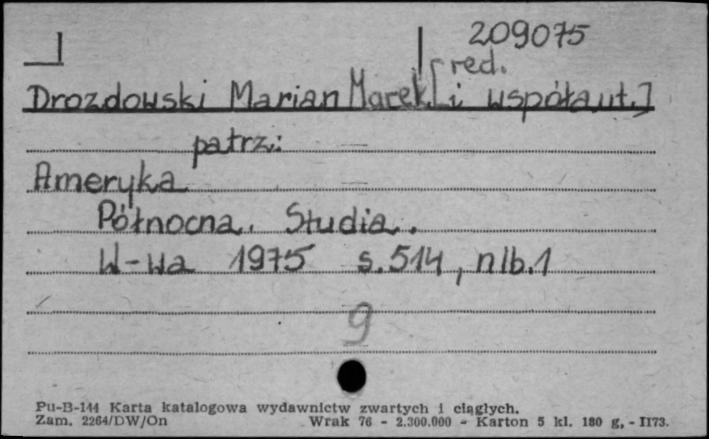 209075
Drozdowski Marian Marek [red. i współaut.]
patrz:
Ameryka
Północna. Studia.
W-wa 1975 s. 514, nlb. 1
9
Pu-B-144 Karta katalogowa wydawnictw zwartych i ciągłych.
Zam. 2264/DW/On Wrak 76 - 2.300.000 - Karton 5 kl. 180 g, - II73.